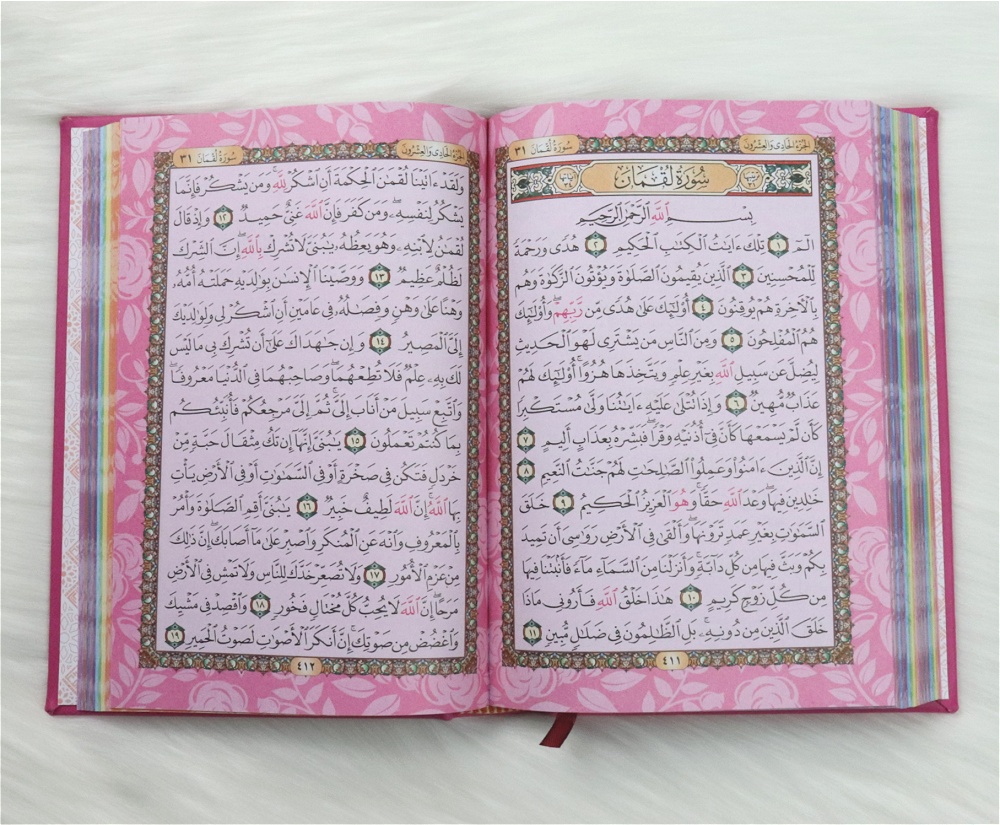 الجزء الحادي والعشرون
سورة لقمان ٣١
سُورَةُ لُقْمَانَ
بِسْمِ ٱللَّهِ ٱلرَّحْمَٰنِ ٱلرَّحِيمِ
الٓمٓ ١ تِلْكَ ءَايَٰتُ ٱلْكِتَٰبِ ٱلْحَكِيمِ ٢ هُدًى وَرَحْمَةً
لِّلْمُحْسِنِينَ ٣ ٱلَّذِينَ يُقِيمُونَ ٱلصَّلَوٰةَ وَيُؤْتُونَ ٱلزَّكَوٰةَ وَهُم
بِٱلْءَاخِرَةِ هُمْ يُوقِنُونَ ٤ أُو۟لَٰٓئِكَ عَلَىٰ هُدًى مِّن رَّبِّهِمْ ۖ وَأُو۟لَٰٓئِكَ
هُمُ ٱلْمُفْلِحُونَ ٥ وَمِنَ ٱلنَّاسِ مَن يَشْتَرِى لَهْوَ ٱلْحَدِيثِ
لِيُضِلَّ عَن سَبِيلِ ٱللَّهِ بِغَيْرِ عِلْمٍ وَيَتَّخِذَهَا هُزُوًا ۚ أُو۟لَٰٓئِكَ لَهُمْ
عَذَابٌ مُّهِينٌ ٦ وَإِذَا تُتْلَىٰ عَلَيْهِ ءَايَٰتُنَا وَلَّىٰ مُسْتَكْبِرًا
كَأَن لَّمْ يَسْمَعْهَا كَأَنَّ فِىٓ أُذُنَيْهِ وَقْرًا ۖ فَبَشِّرْهُ بِعَذَابٍ أَلِيمٍ ٧
إِنَّ ٱلَّذِينَ ءَامَنُوا۟ وَعَمِلُوا۟ ٱلصَّٰلِحَٰتِ لَهُمْ جَنَّٰتُ ٱلنَّعِيمِ ٨
خَٰلِدِينَ فِيهَا ۖ وَعْدَ ٱللَّهِ حَقًّا ۚ وَهُوَ ٱلْعَزِيزُ ٱلْحَكِيمُ ٩ خَلَقَ
ٱلسَّمَٰوَٰتِ بِغَيْرِ عَمَدٍ تَرَوْنَهَا ۖ وَأَلْقَىٰ فِى ٱلْأَرْضِ رَوَٰسِىَ أَن تَمِيدَ
بِكُمْ وَبَثَّ فِيهَا مِن كُلِّ دَآبَّةٍ ۚ وَأَنزَلْنَا مِنَ ٱلسَّمَآءِ مَآءً فَأَنۢبَتْنَا فِيهَا
مِن كُلِّ زَوْجٍ كَرِيمٍ ١٠ هَٰذَا خَلْقُ ٱللَّهِ فَأَرُونِى مَاذَا
خَلَقَ ٱلَّذِينَ مِن دُونِهِۦ ۚ بَلِ ٱلظَّٰلِمُونَ فِى ضَلَٰلٍ مُّبِينٍ ١١
٤١١
الجزء الحادي والعشرون
سورة لقمان ٣١
وَلَقَدْ ءَاتَيْنَا لُقْمَٰنَ ٱلْحِكْمَةَ أَنِ ٱشْكُرْ لِلَّهِ ۚ وَمَن يَشْكُرْ فَإِنَّمَا
يَشْكُرُ لِنَفْسِهِۦ ۖ وَمَن كَفَرَ فَإِنَّ ٱللَّهَ غَنِىٌّ حَمِيدٌ ١٢ وَإِذْ قَالَ
لُقْمَٰنُ لِٱبْنِهِۦ وَهُوَ يَعِظُهُۥ يَٰبُنَىَّ لَا تُشْرِكْ بِٱللَّهِ ۖ إِنَّ ٱلشِّرْكَ
لَظُلْمٌ عَظِيمٌ ١٣ وَوَصَّيْنَا ٱلْإِنسَٰنَ بِوَٰلِدَيْهِ حَمَلَتْهُ أُمُّهُۥ
وَهْنًا عَلَىٰ وَهْنٍ وَفِصَٰلُهُۥ فِى عَامَيْنِ أَنِ ٱشْكُرْ لِى وَلِوَٰلِدَيْكَ
إِلَىَّ ٱلْمَصِيرُ ١٤ وَإِن جَٰهَدَاكَ عَلَىٰٓ أَن تُشْرِكَ بِى مَا لَيْسَ
لَكَ بِهِۦ عِلْمٌ فَلَا تُطِعْهُمَا ۖ وَصَاحِبْهُمَا فِى ٱلدُّنْيَا مَعْرُوفًا ۖ
وَٱتَّبِعْ سَبِيلَ مَنْ أَنَابَ إِلَىَّ ۚ ثُمَّ إِلَىَّ مَرْجِعُكُمْ فَأُنَبِّئُكُم
بِمَا كُنتُمْ تَعْمَلُونَ ١٥ يَٰبُنَىَّ إِنَّهَآ إِن تَكُ مِثْقَالَ حَبَّةٍ مِّنْ
خَرْدَلٍ فَتَكُن فِى صَخْرَةٍ أَوْ فِى ٱلسَّمَٰوَٰتِ أَوْ فِى ٱلْأَرْضِ يَأْتِ
بِهَا ٱللَّهُ ۚ إِنَّ ٱللَّهَ لَطِيفٌ خَبِيرٌ ١٦ يَٰبُنَىَّ أَقِمِ ٱلصَّلَوٰةَ وَأْمُرْ
بِٱلْمَعْرُوفِ وَٱنْهَ عَنِ ٱلْمُنكَرِ وَٱصْبِرْ عَلَىٰ مَآ أَصَابَكَ ۖ إِنَّ ذَٰلِكَ
مِنْ عَزْمِ ٱلْأُمُورِ ١٧ وَلَا تُصَعِّرْ خَدَّكَ لِلنَّاسِ وَلَا تَمْشِ فِى ٱلْأَرْضِ
مَرَحًا ۖ إِنَّ ٱللَّهَ لَا يُحِبُّ كُلَّ مُخْتَالٍ فَخُورٍ ١٨ وَٱقْصِدْ فِى مَشْيِكَ
وَٱغْضُضْ مِن صَوْتِكَ ۚ إِنَّ أَنكَرَ ٱلْأَصْوَٰتِ لَصَوْتُ ٱلْحَمِيرِ ١٩
٤١٢